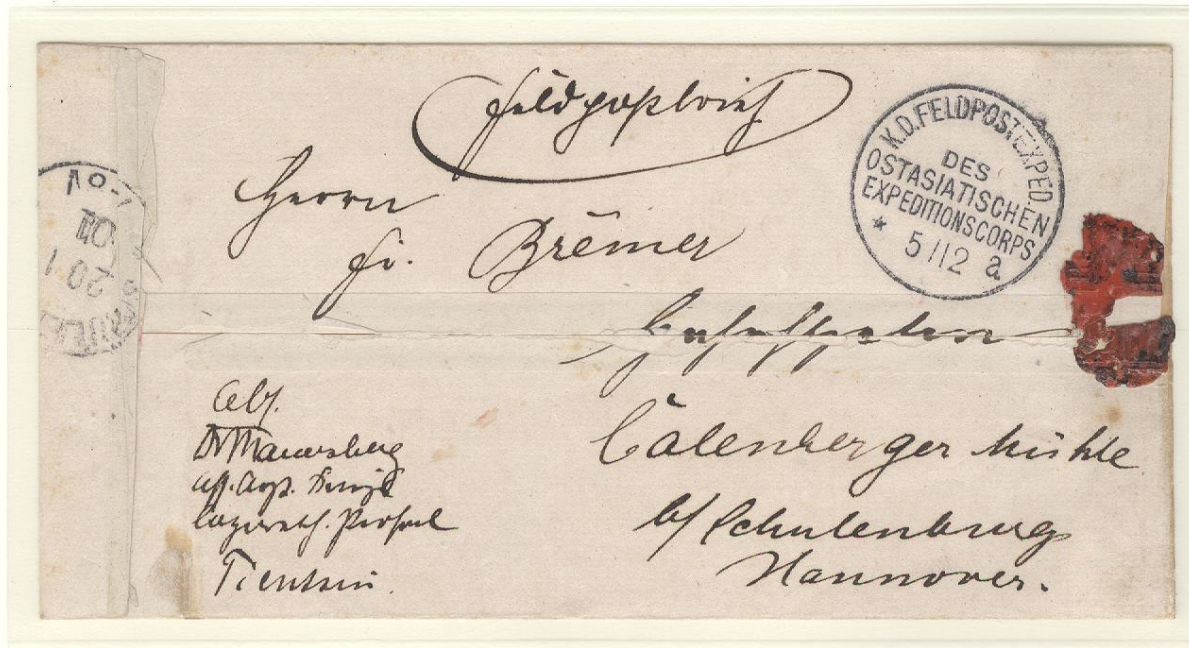 Feldpostbrief
K.D. FELDPOSTEXPED.
DES
OSTASIATISCHEN
EXPEDITIONSCORPS
* 5/12 a
Herrn
Fr. Bremer
Calenberger Mühle
b/ Schulenburg
Hannover.
Abs.
Dr Mauersberg
Tientsin.
20 1
01